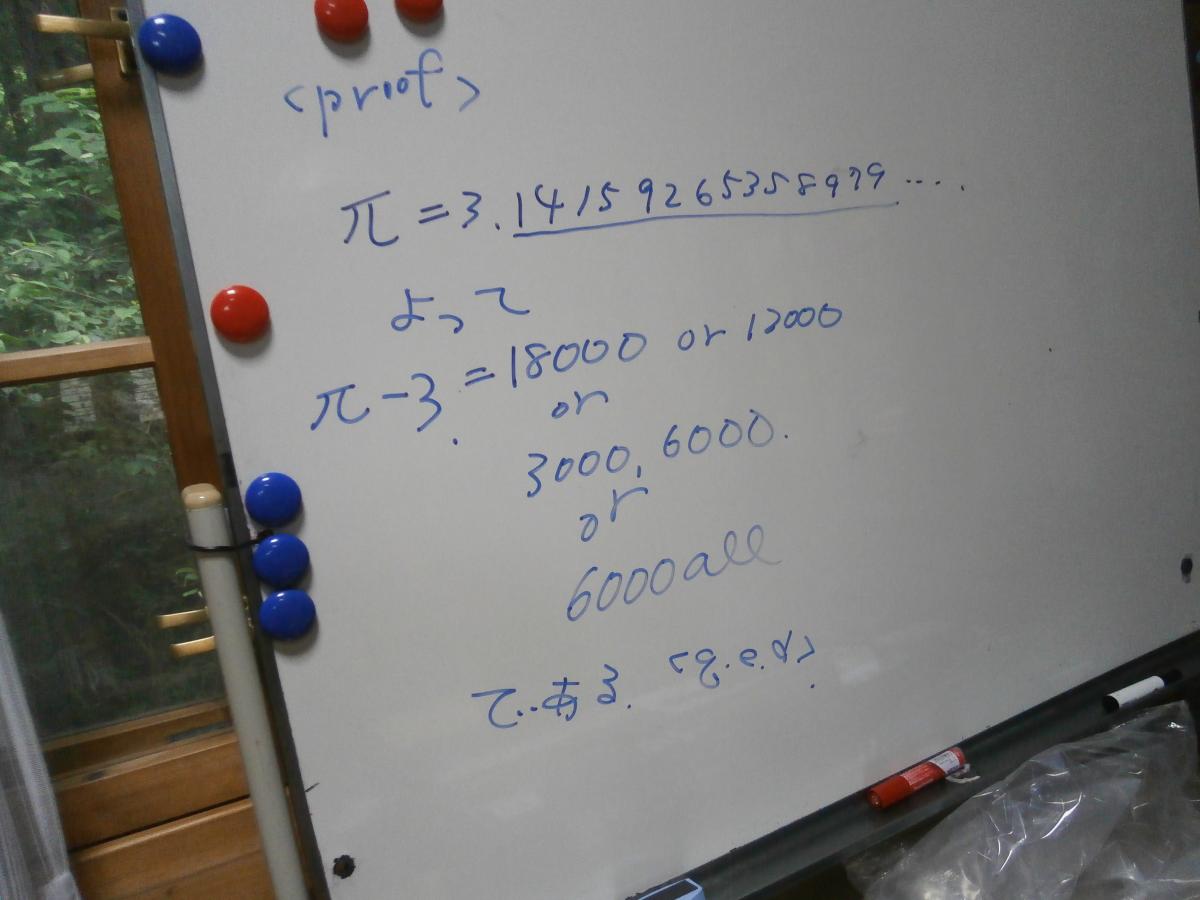 <proof>
π = 3.14159265358979....
よって
π-3. = 18000 or 12000
or
3000, 6000.
or
6000 all
である. <q.e.d>.